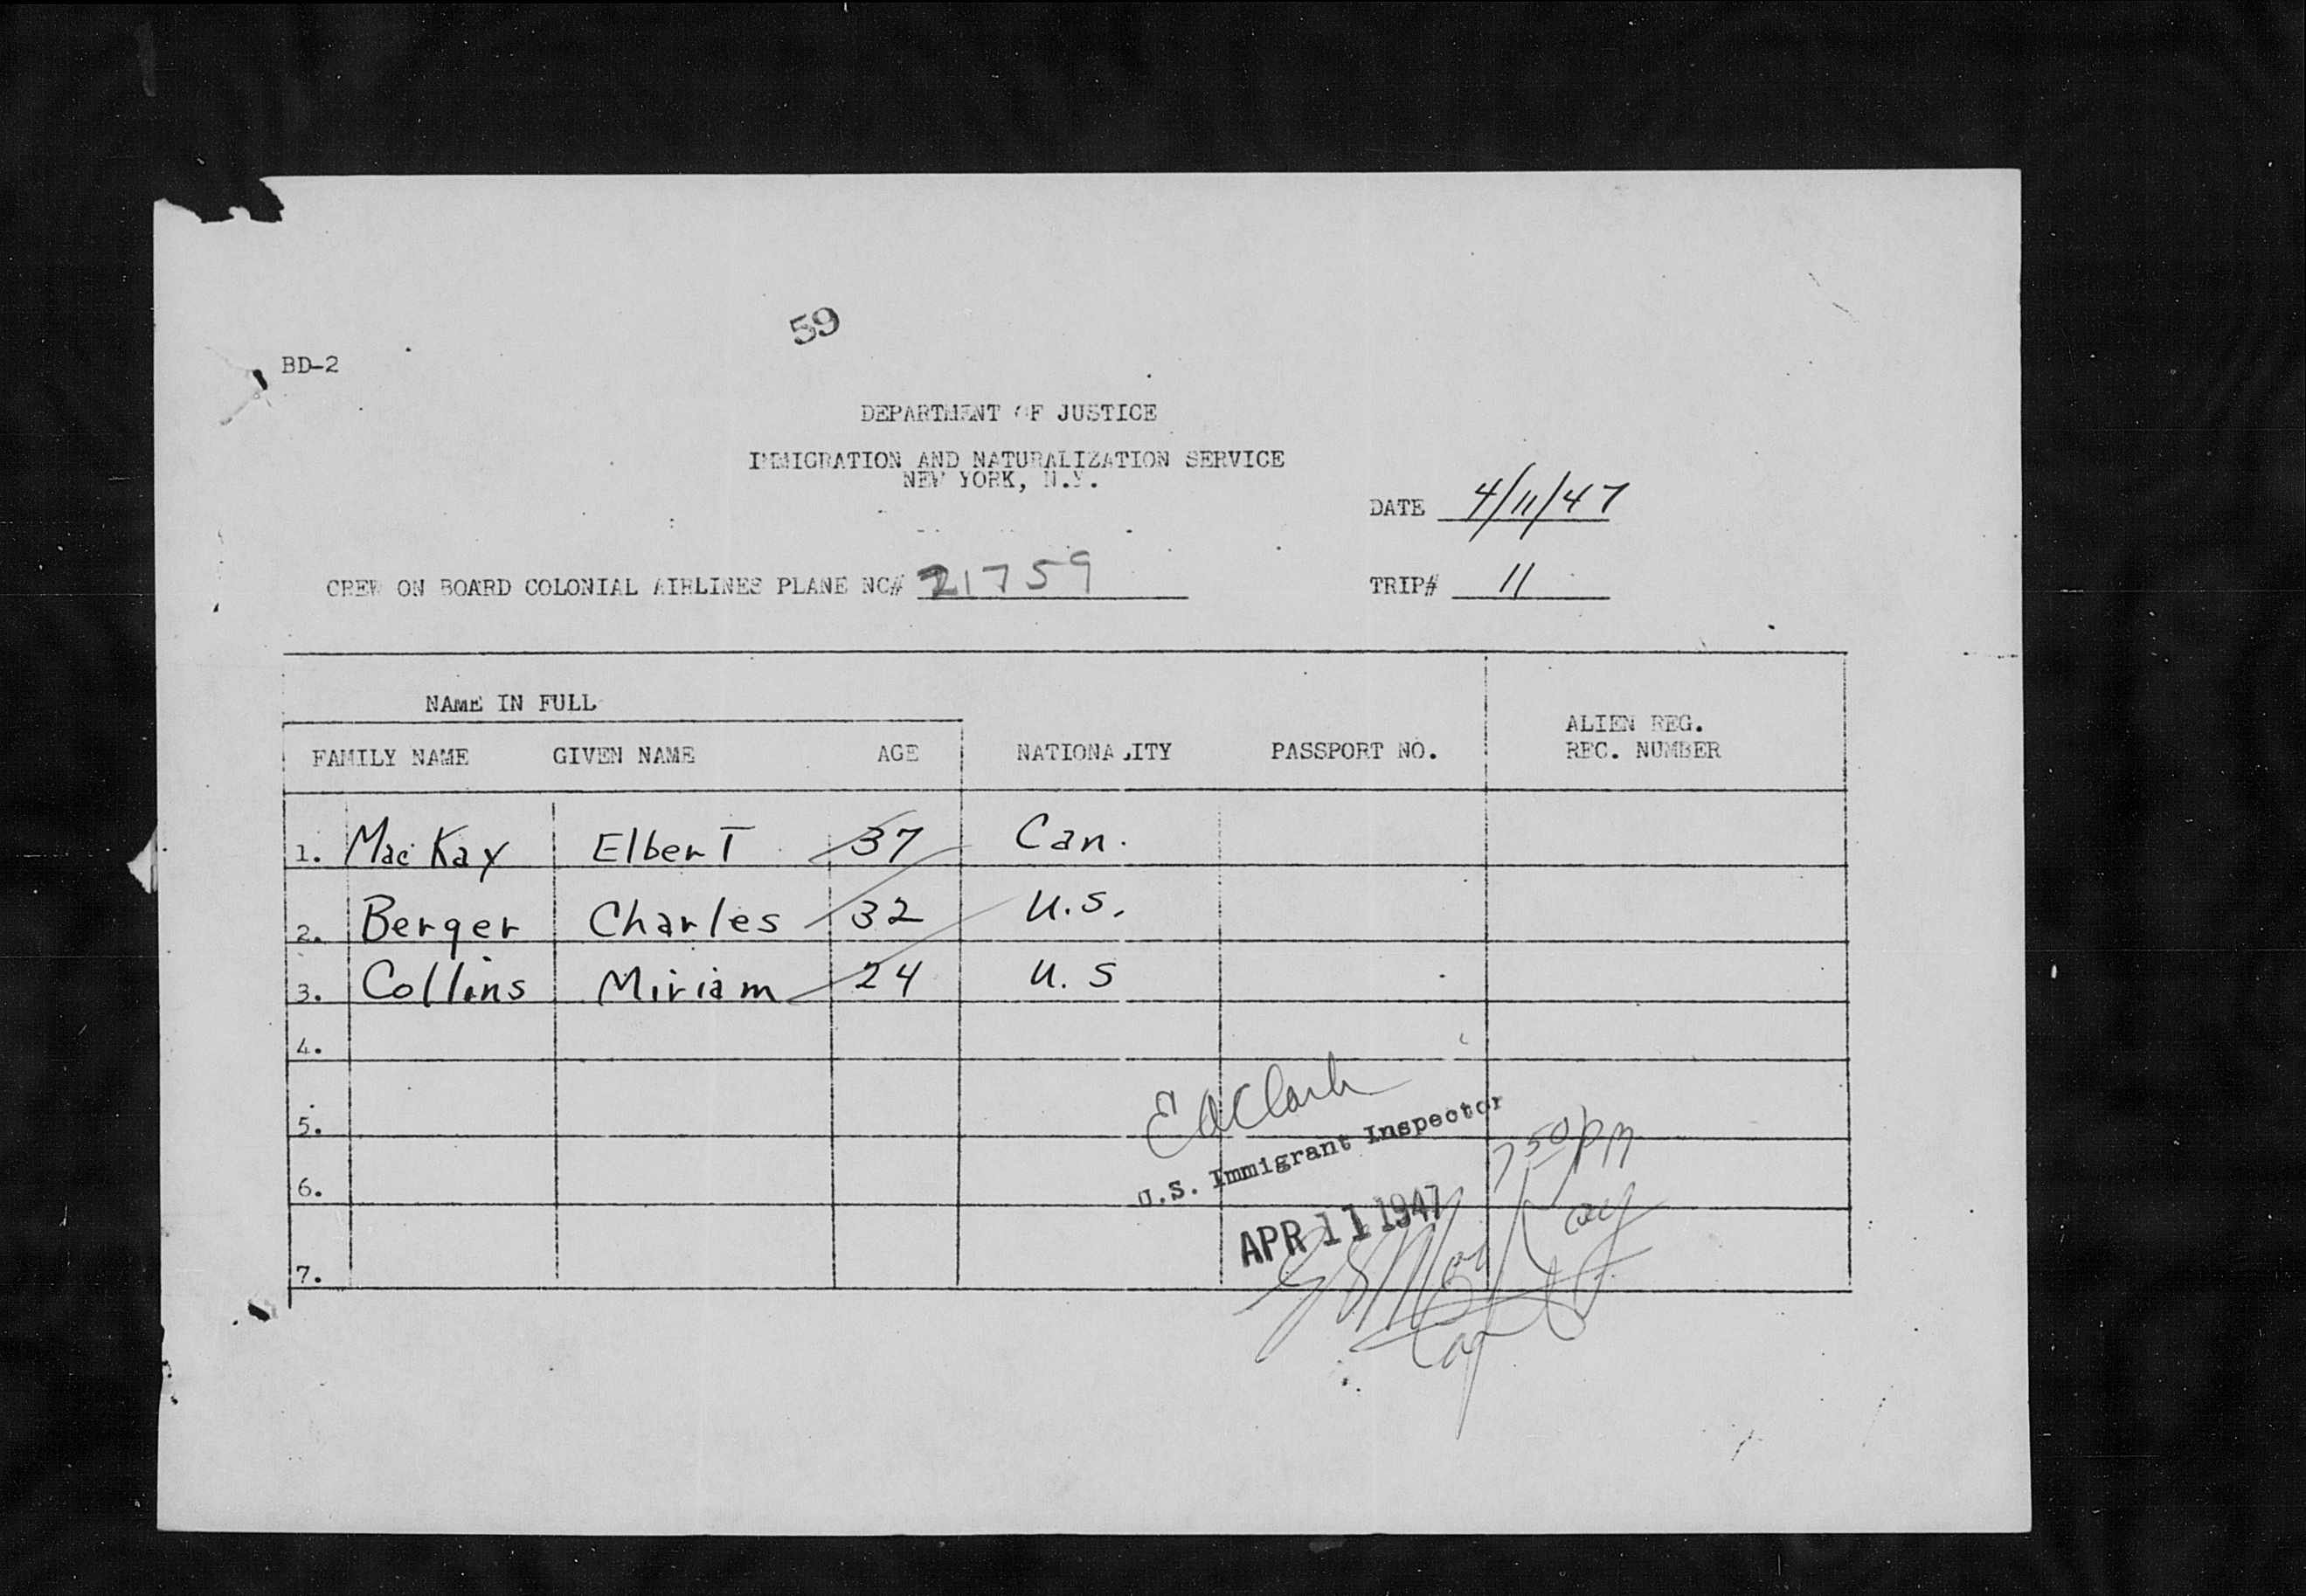 59
BD-2
DEPARTMENT OF JUSTICE
IMMIGRATION AND NATURALIZATION SERVICE
NEW YORK, N.Y.
DATE 4/11/47
CREW ON BOARD COLONIAL AIRLINES PLANE NC# 21759
TRIP# 11
NAME IN FULL
ALIEN REG.
FAMILY NAME GIVEN NAME AGE NATIONALITY PASSPORT NO. REC. NUMBER
1. MacKay Elbert 37 Can.
2. Berger Charles 32 U.S.
3. Collins Miriam 24 U.S
4.
5.
6.
7.
E A Clark
U.S. Immigrant Inspector
7 50 pm
APR 11 1947
MacKay
Capt